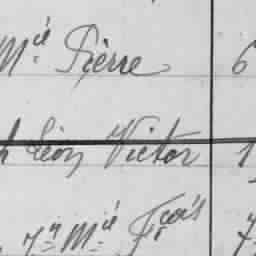 Mie Pierre 6
h Léon Victor 1
Jn Mie Fçois 7